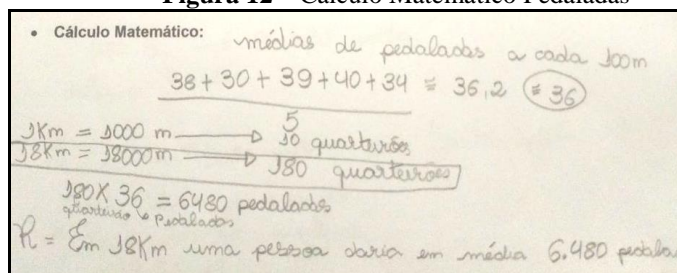 Figura 12 – Cálculo Matemático Pedaladas
• Cálculo Matemático:
médias de pedaladas a cada 100m
38 + 30 + 39 + 40 + 34 ≅ 36,2 ≅ 36
5
1Km = 1000 m → 10 quarteirões
18Km = 18000m → 180 quarteirões
180 X 36 = 6480 pedaladas
quarteirão e pedaladas
R = Em 18Km uma pessoa daria em média 6.480 pedala